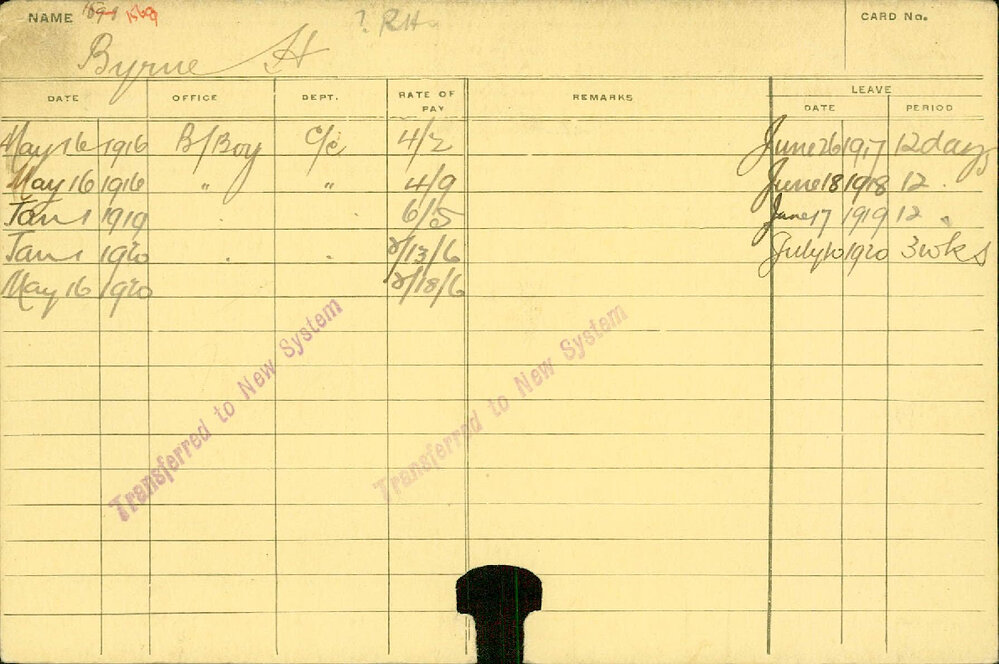 NAME 1569 ? RH CARD No.
Byrne H
DATE OFFICE DEPT. RATE OF PAY REMARKS LEAVE
DATE PERIOD
May 16 1916 B/Boy C/c 4/2 June 26 1917 12 days
May 16 1916 " " 4/9 June 18 1918 12
Jan 1 1919 6/5 June 17 1919 12
Jan 1 1920 /13/6 July 10 1920 3 wks
May 16 1920 /18/6
Transferred to New System
Transferred to New System